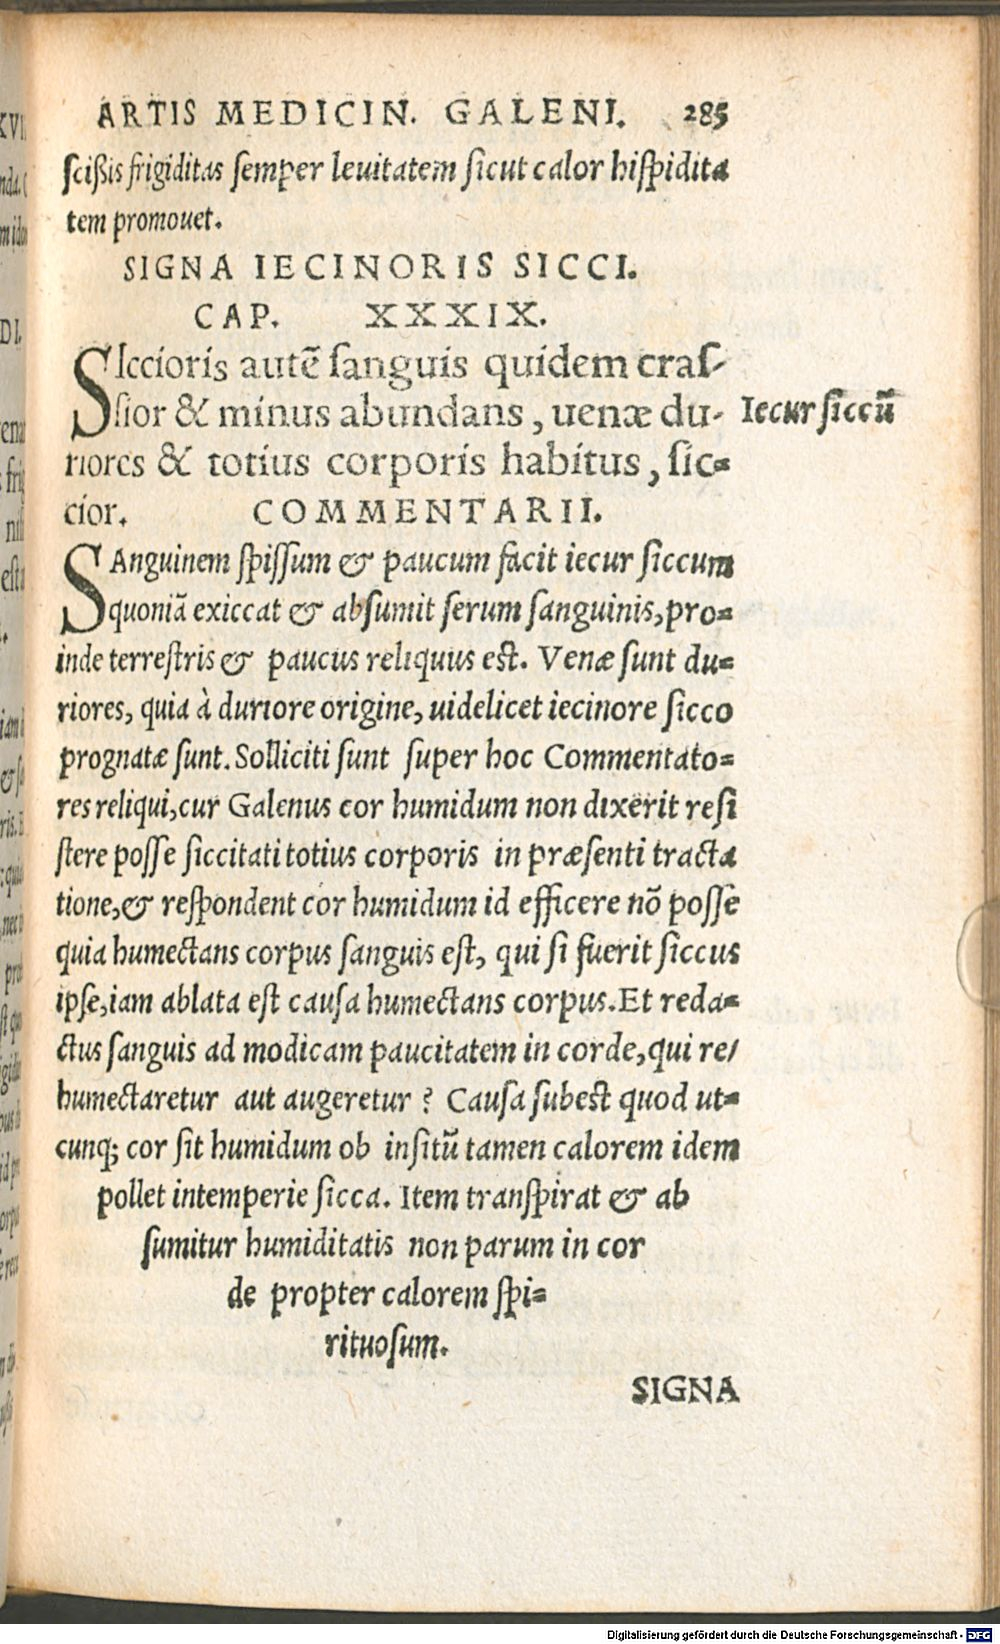 ARTIS MEDICIN. GALENI. 285
scißis frigiditas semper leuitatem sicut calor hispidita
tem promouet.
SIGNA IECINORIS SICCI.
CAP. XXXIX.
SIccioris autē sanguis quidem cras-
sior & minus abundans, uenæ du- Iecur siccū
riores & totius corporis habitus, sic=
cior. COMMENTARII.
SAnguinem spissum & paucum facit iecur siccum
quoniā exiccat & absumit serum sanguinis, pro=
inde terrestris & paucus reliquus est. Venæ sunt du=
riores, quia à duriore origine, uidelicet iecinore sicco
prognatæ sunt. Solliciti sunt super hoc Commentato=
res reliqui, cur Galenus cor humidum non dixerit resi
stere posse siccitati totius corporis in præsenti tracta
tione, & respondent cor humidum id efficere nō posse
quia humectans corpus sanguis est, qui si fuerit siccus
ipse, iam ablata est causa humectans corpus. Et reda=
ctus sanguis ad modicam paucitatem in corde, qui re/
humectaretur aut augeretur? Causa subest quod ut=
cunq; cor sit humidum ob insitū tamen calorem idem
pollet intemperie sicca. Item transpirat & ab
sumitur humiditatis non parum in cor
de propter calorem spi=
rituosum.
SIGNA
Digitalisierung gefördert durch die Deutsche Forschungsgemeinschaft - DFG